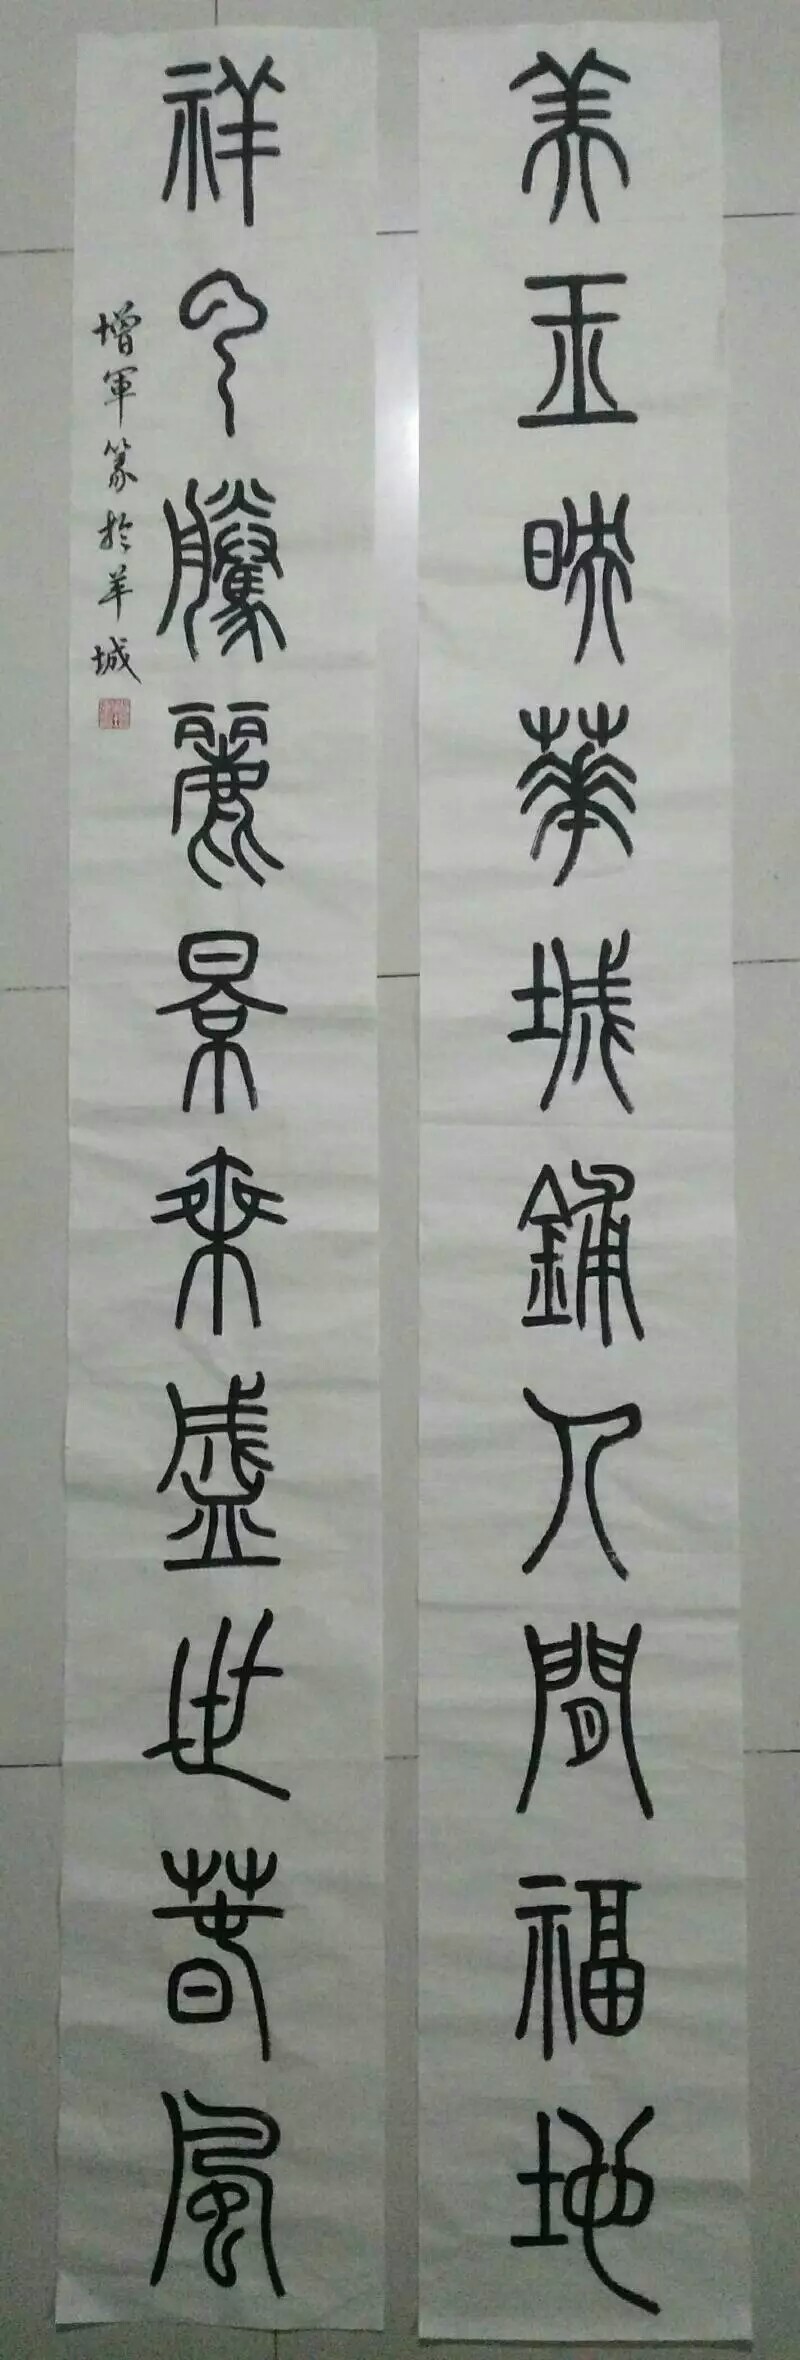 美玉映華城鋪人間福地
祥云騰麗景來盛世春風
增軍篆於羊城